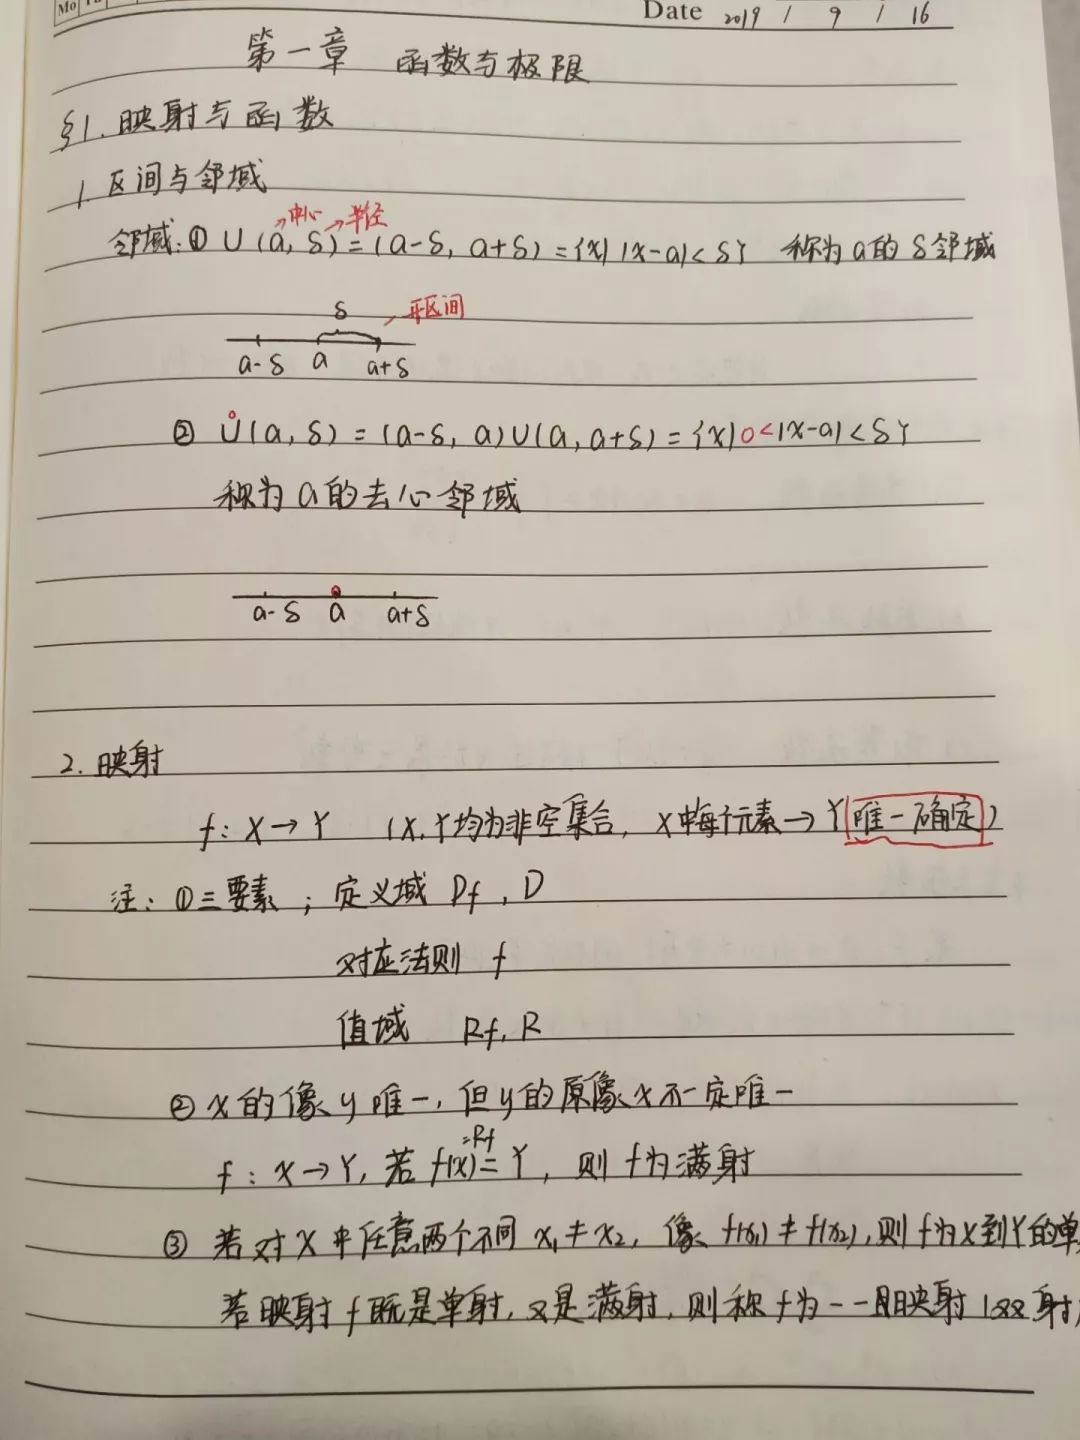 Mo
Date 2019 / 9 / 16
第一章 函数与极限
§1.映射与函数
1.区间与邻域
→中心 →半径
邻域:① U(a,δ)=(a-δ,a+δ)={x||x-a|<δ} 称为a的δ邻域
δ 开区间
a-δ a a+δ
② Ů(a,δ)=(a-δ,a)∪(a,a+δ)={x|0<|x-a|<δ}
称为a的去心邻域
a-δ a a+δ
2.映射
f:X→Y (X,Y均为非空集合,X中每个元素→Y唯一确定)
注:①三要素;定义域 Df,D
对应法则 f
值域 Rf,R
②x的像y唯一,但y的原像x不一定唯一
=Rf
f:X→Y,若f(X)=Y,则f为满射
③若对X中任意两个不同x₁≠x₂,像f(x₁)≠f(x₂),则f为X到Y的单
若映射f既是单射,又是满射,则称f为一一映射(双射